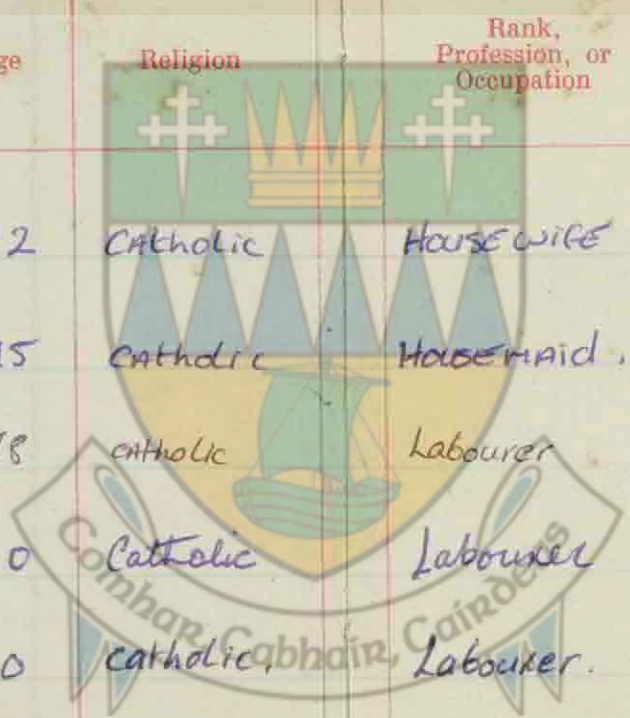 ge Religion Rank,
Profession, or
Occupation
2 Catholic Housewife
15 Catholic Housemaid.
8 catholic Labourer
0 Catholic Labourer
0 catholic. Labourer.
Comhar, Cabhair, Cairdeas